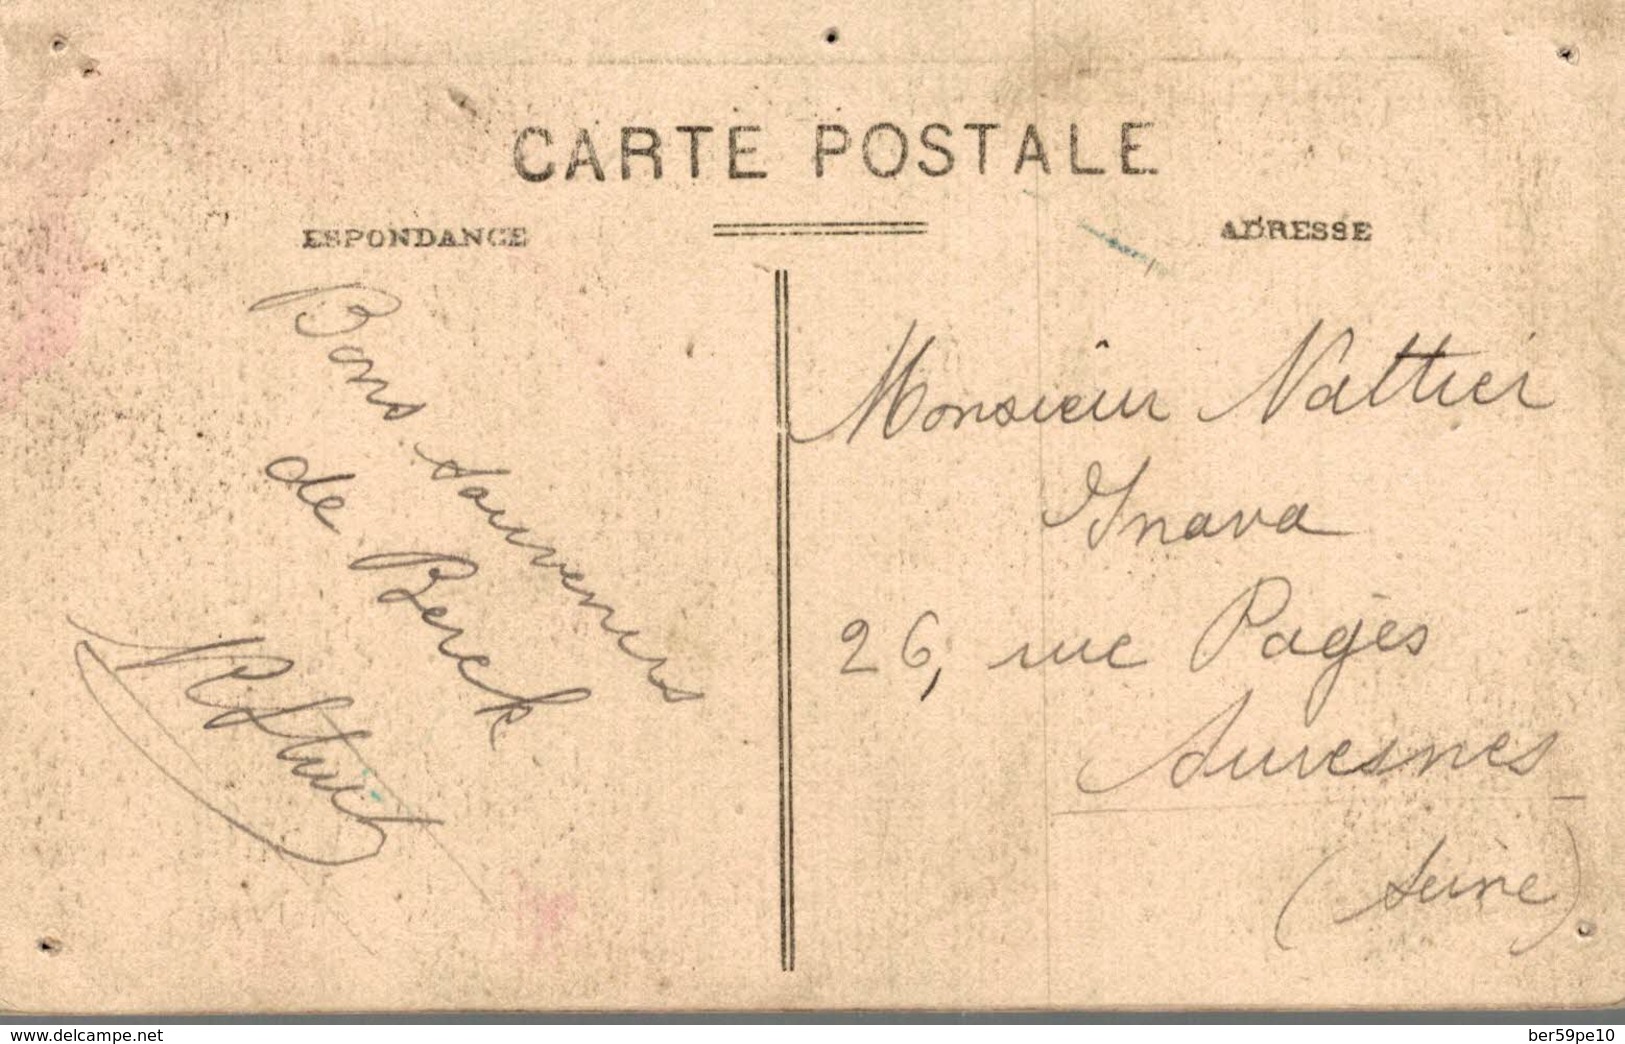 CARTE POSTALE
ESPONDANCE
ADRESSE
Bons souvenirs
de Berck
Monsieûr Nattier
Inava
26, rue Pagès
Suresnes
(Seine)
www.delcampe.net
ber59pe10